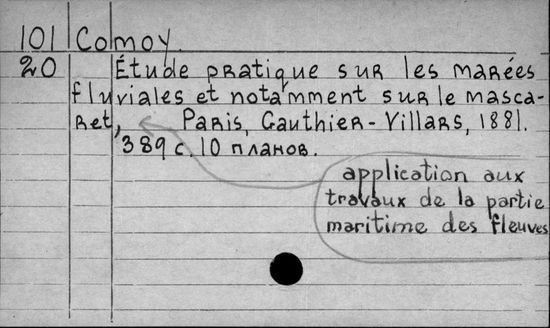 101 Comoy.
20 Étude pratique sur les marées
fluviales et notamment sur le masca-
ret, Paris, Gauthier-Villars, 1881.
389 с. 10 планов.
application aux
travaux de la partie
maritime des fleuves